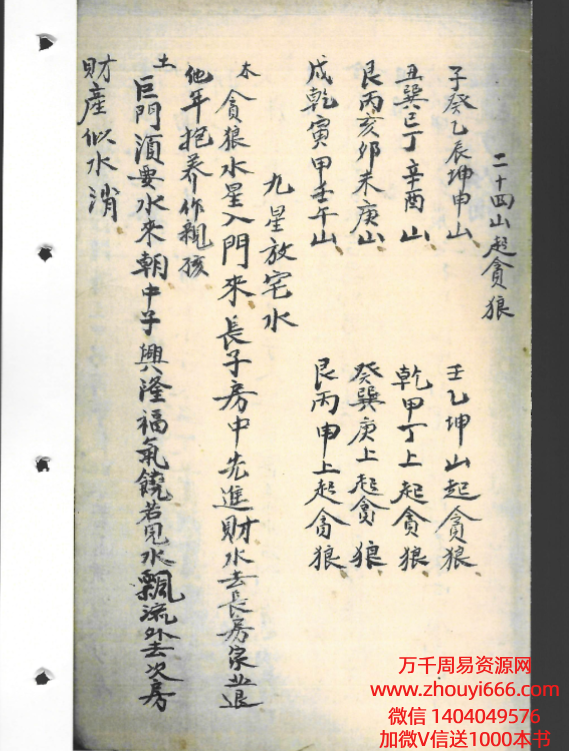 二十四山起貪狼
子癸乙辰坤申山 壬乙坤山起貪狼
丑巽巳丁辛酉山 乾甲丁上起貪狼
艮丙亥卯未庚山 癸巽庚上起貪狼
戌乾寅甲壬午山 艮丙申上起貪狼
九星放宅水
木 貪狼水星入門來長子房中先進財水去長房家业退
他年抱养作親孩
土 巨門須要水來朝中子興隆福氣饒若見水飄流外去次房
財産似水消
万千周易资源网
www.zhouyi666.com
微信 1404049576
加微V信送1000本书